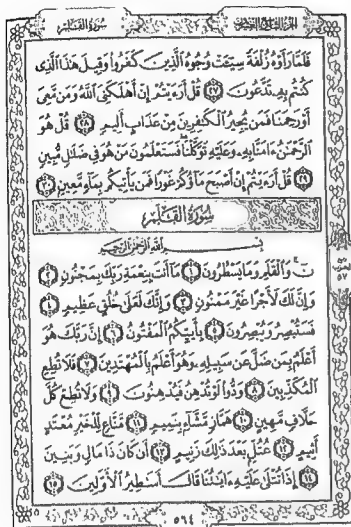 الجزء التاسع والعشرون
سورة القلم
فَلَمَّا رَأَوْهُ زُلْفَةً سِيٓـَٔتْ وُجُوهُ ٱلَّذِينَ كَفَرُوا۟ وَقِيلَ هَٰذَا ٱلَّذِى
كُنتُم بِهِۦ تَدَّعُونَ ٢٧ قُلْ أَرَءَيْتُمْ إِنْ أَهْلَكَنِىَ ٱللَّهُ وَمَن مَّعِىَ
أَوْ رَحِمَنَا فَمَن يُجِيرُ ٱلْكَٰفِرِينَ مِنْ عَذَابٍ أَلِيمٍ ٢٨ قُلْ هُوَ
ٱلرَّحْمَٰنُ ءَامَنَّا بِهِۦ وَعَلَيْهِ تَوَكَّلْنَا ۖ فَسَتَعْلَمُونَ مَنْ هُوَ فِى ضَلَٰلٍ مُّبِينٍ
٢٩ قُلْ أَرَءَيْتُمْ إِنْ أَصْبَحَ مَآؤُكُمْ غَوْرًا فَمَن يَأْتِيكُم بِمَآءٍ مَّعِينٍۭ ٣٠
سورة القلم
بِسْمِ ٱللَّهِ ٱلرَّحْمَٰنِ ٱلرَّحِيمِ
نٓ ۚ وَٱلْقَلَمِ وَمَا يَسْطُرُونَ ١ مَآ أَنتَ بِنِعْمَةِ رَبِّكَ بِمَجْنُونٍ ٢
وَإِنَّ لَكَ لَأَجْرًا غَيْرَ مَمْنُونٍ ٣ وَإِنَّكَ لَعَلَىٰ خُلُقٍ عَظِيمٍ ٤
فَسَتُبْصِرُ وَيُبْصِرُونَ ٥ بِأَييِّكُمُ ٱلْمَفْتُونُ ٦ إِنَّ رَبَّكَ هُوَ
أَعْلَمُ بِمَن ضَلَّ عَن سَبِيلِهِۦ وَهُوَ أَعْلَمُ بِٱلْمُهْتَدِينَ ٧ فَلَا تُطِعِ
ٱلْمُكَذِّبِينَ ٨ وَدُّوا۟ لَوْ تُدْهِنُ فَيُدْهِنُونَ ٩ وَلَا تُطِعْ كُلَّ
حَلَّافٍ مَّهِينٍ ١٠ هَمَّازٍ مَّشَّآءٍۭ بِنَمِيمٍ ١١ مَّنَّاعٍ لِّلْخَيْرِ مُعْتَدٍ
أَثِيمٍ ١٢ عُتُلٍّۭ بَعْدَ ذَٰلِكَ زَنِيمٍ ١٣ أَن كَانَ ذَا مَالٍ وَبَنِينَ
١٤ إِذَا تُتْلَىٰ عَلَيْهِ ءَايَٰتُنَا قَالَ أَسَٰطِيرُ ٱلْأَوَّلِينَ ١٥
٥٦٤